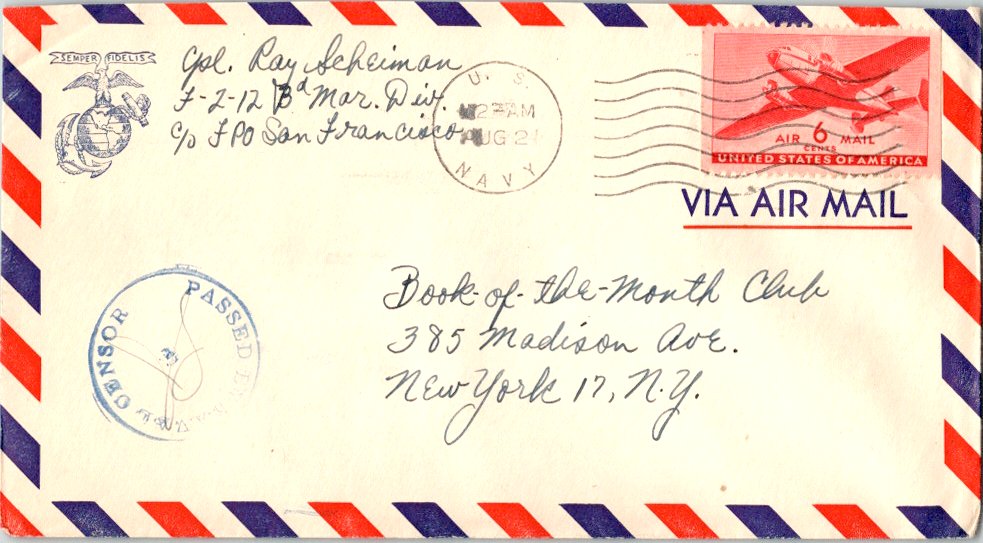 SEMPER FIDELIS
Cpl. Ray Scheiman
F-2-12 3d Mar. Div.
c/o FPO San Francisco
U. S.
AM
AUG 2
NAVY
AIR 6 MAIL
CENTS
UNITED STATES OF AMERICA
VIA AIR MAIL
PASSED
CENSOR
Book-of-the-Month Club
385 Madison Ave.
New York 17, N.Y.